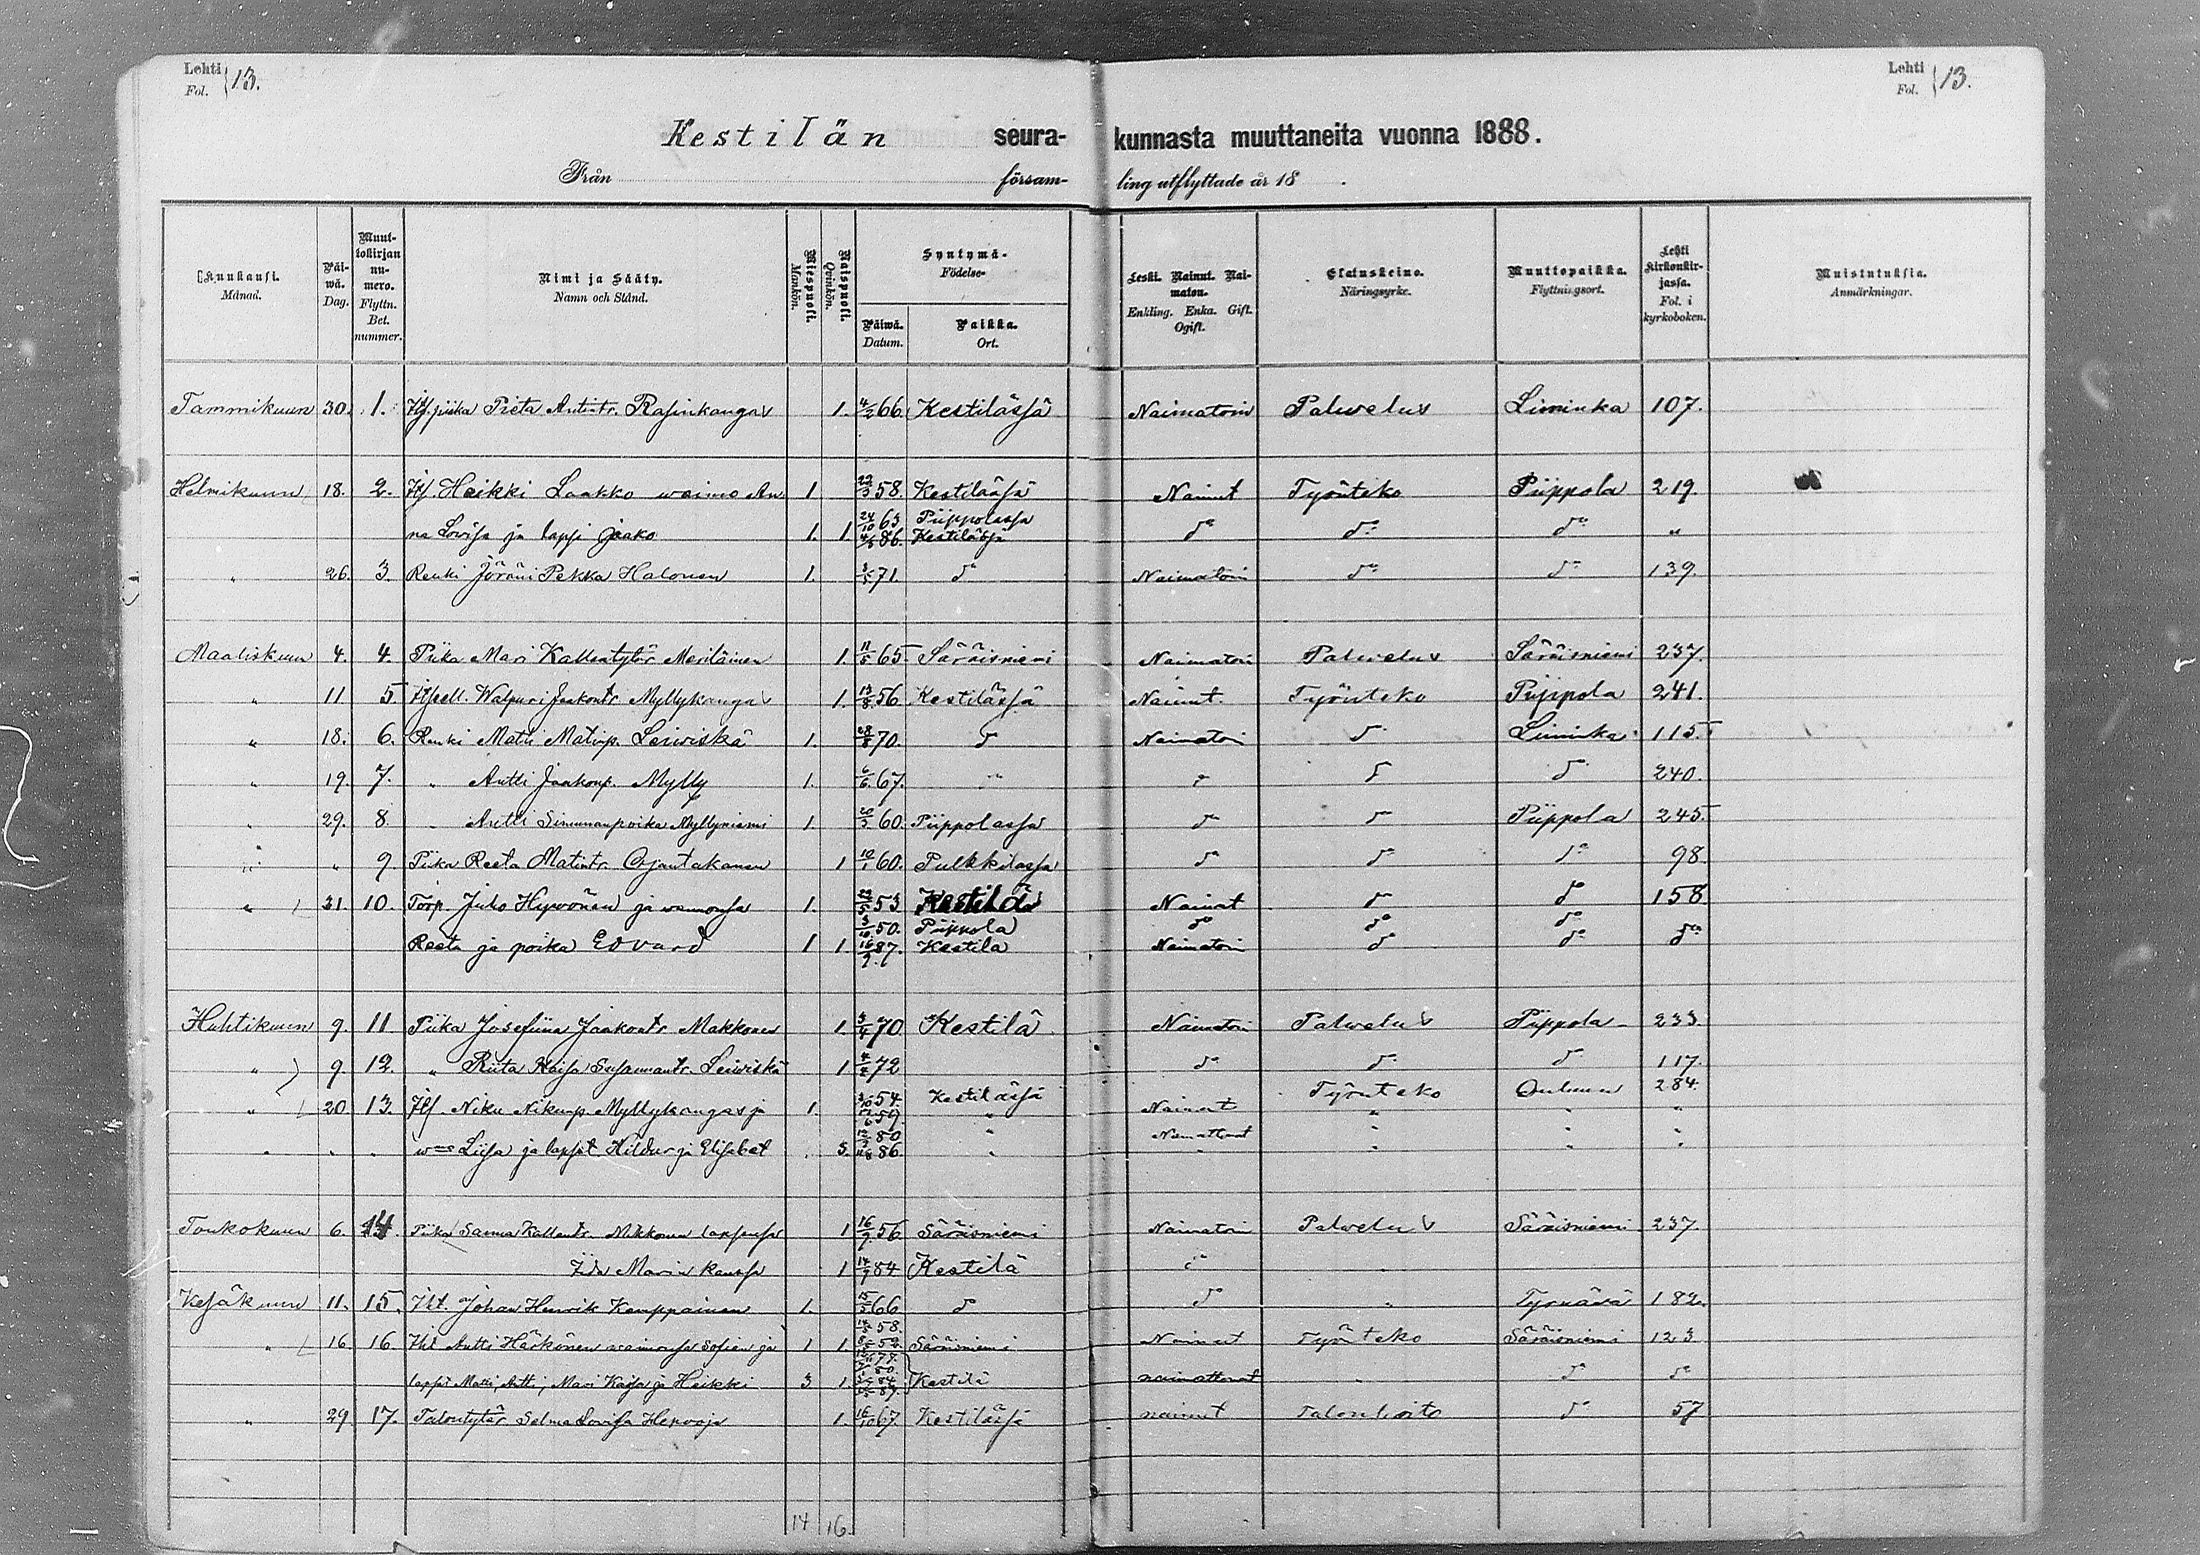 Lehti Fol. 13. Lehti Fol. 13.
Kestilän seura- kunnasta muuttaneita vuonna 1888.
Från församling utflyttade år 18 .
Kuukausi. Månad. Päiwä. Dag. Muuttokirjan numero. Flyttn. Bet. nummer. Nimi ja Sääty. Namn och Stånd. Miespuoli. Mankön. Naispuoli. Qvinkön. Syntymä- Födelse- Päiwä. Datum. Paikka. Ort. Leski. Nainut. Naimaton. Enkling. Enka. Gift. Ogift. Elatuskeino. Näringsyrke. Muuttopaikka. Flyttningsort. Lehti kirkonkirjassa. Fol. i kyrkoboken. Muistutuksia. Anmärkningar.
Tammikuun 30. 1. piika Prita Antintr. Rasinkangas 1. 4/2 66. Kestilässä Naimatoin Palwelus Liminka 107.
Helmikuun 18. 2. Heikki Laakko waimo An 1 22/3 58. Kestilässä Nainut Työnteko Piippola 219.
na Lovisa ja lapsi Jaako 1. 1. 24/10 63 Piippolassa 4/5 86. Kestilässä do do do "
" 26. 3. Renki Jöräni Pekka Halonen 1. 3/5 71. do Naimatoin do do 139.
Maaliskuun 4. 4. Piika Mari Kallentytär Meriläinen 1. 11/5 65 Säräisniemi Naimatoin Palwelus Säräisniemi 237.
" 11 5 Walpuri Jaakontr Myllykangas 1. 13/8 56 Kestilässä Nainut. Työnteko Piippola 241.
" 18. 6. Renki Matti Matinp. Leiwiskä 1. 28/8 70. do Naimatoin do Liminka 115.
" 19. 7. " Antti Jaakonp. Mylly 1. 6/6 67. " do do do 240.
" 29. 8. " Antti Simunanpoika Myllyniemi 1. 20/3 60. Piippolassa do do Piippola 245.
" " 9. Piika Reeta Matintr. Ojantakanen 1 10/1 60. Pulkkilassa do do do 98
" 31. 10. Torp. Juho Hyvönen ja waimonsa 1. 22/5 53 Kestilä Nainut do do 158
Reeta ja poika Edvard 1 1. 3/10 50. Piippola 16/9 87. Kestilä do Naimatoin do do do do do
Huhtikuun 9. 11. Piika Josefiina Jaakontr. Makkonen 1. 3/4 70 Kestilä Naimatoin Palwelus Piippola 233.
" 9 12. " Riita Kaisa Leiwiskä 1 4/4 72 do do do 117.
" 20 13. Niku Nikunp. Myllykangas ja 1. 3/10 54 Kestilässä Nainut Työnteko Ouluun 284.
" " " w=o Liisa ja lapset Hildur ja Elisabet 3. 17/6 59. 12/3 80 86 " Naimattomat " " "
Toukokuun 6. 14. Piika Sanna Kallentr. Mikkonen lapsensa 1 16/9 56 Säräisniemi Naimatoin Palwelus Säräisniemi 237.
Ida Maria kanssa 1 14/9 84 Kestilä do "
Kesäkuun 11. 15. Johan Henrik Kemppainen 1. 15/5 66 do do " Tyrnävä 182.
" 16 16. Antti Härkönen waimonsa Sofian ja 1 1. 58. 52. Säräisniemi Nainut Työnteko Säräisniemi 123
lapset Matti, Antti, Mari Kaisa ja Heikki 3 1. Kestilä naimattomat " do do
" 29. 17. Talontytär Selma Lovisa Herwoja 1. 16/10 67 Kestilässä nainut Talonhoito do 57
14 16.